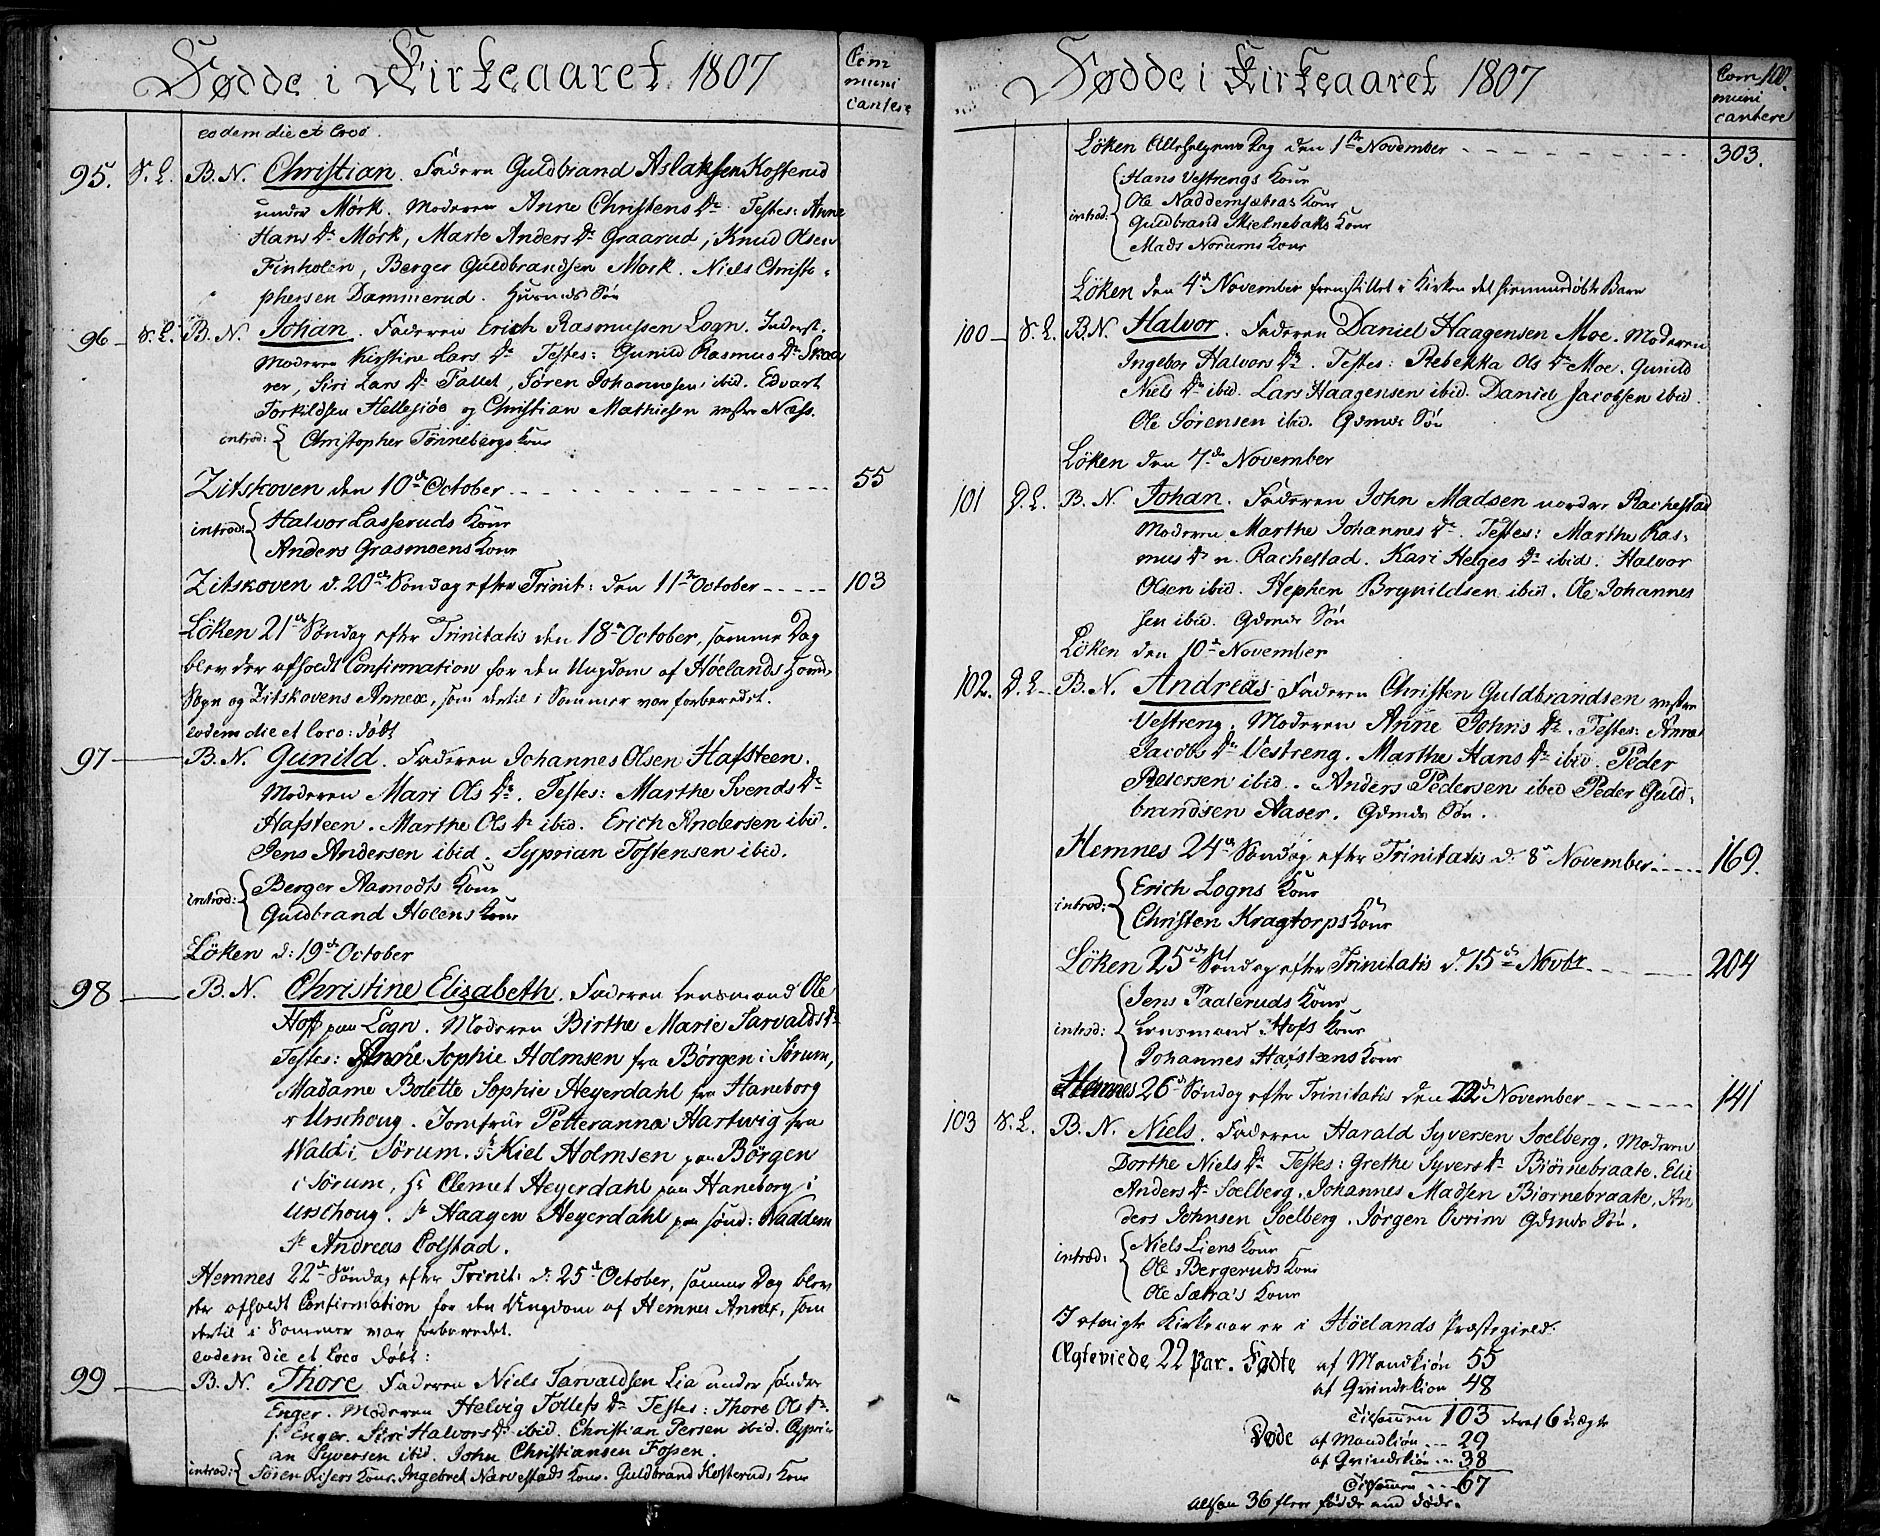 Fødde i Kirkeaaret 1807
Com
muni
cantere
eodem die et loco.
95. S. L. B. N. Christian. Faderen Guldbrand Aslaksen Kosterud
under Mørk. Moderen Anne Christens Dr. Testes: Anne
Hans Dr Mørk, Marte Anders Dr Graarud, Knud Olsen
Finholen, Berger Guldbrandsen Mørk. Niels Christo-
phersen Dammerud. Huusmds Søn
96 S. L. B. N. Johan. Faderen Erich Rasmussen Logn. Inderst.
Moderen Kirstine Lars Dr Testes: Gunild Rasmus Dr Skaa
rer, Siri Lars Dr Tallet, Søren Johannesen ibid. Edvart
Torkildsen Hellesiøe og Christian Mathiesen vestre Næss.
introd: { Christopher Tønnebergs Kone
Zitskoven den 10de October - - - 55
introd: { Halvor Lasseruds Kone
Anders Grasmoens Kone
Zitskoven d. 20de Søndag efter Trinit: den 11te October - - - 103
Løken 21de Søndag efter Trinitatis den 18de October, samme Dag
blev der afholdt Confirmation for den Ungdom af Høelands Hoved
Sogn og Zitskovens Annex, som dertil i Sommer var forberedet.
eodem die et loco: døbt
97 B. N. Gunild. Faderen Johannes Olsen Hafsteen.
Moderen Mari Ols Dr. Testes: Marthe Svends Dr
Hafsteen. Marthe Ols Dr ibid. Erich Andersen ibid.
Jens Andersen ibid. Syprian Tostensen ibid.
introd: { Berger Aamodts Kone
Guldbrand Holens Kone
Løken d: 19de October
98 B. N. Christine Elizabeth. Faderen Lensmand Ole
Hoff paa Logn. Moderen Birthe Marie Tarvalds Dr
Testes: Anne Sophie Holmsen fra Børgen i Sørum,
Madame Bolette Sophie Heyerdahl fra Haneborg
i Urschoug. Jomfrue Petteranna Hartwig fra
Wald i Sørum. Sr Kiel Holmsen paa Børgen
i Sørum, Hr Clemet Heyerdahl paa Haneborg i
Urschoug. Sr Haagen Heyerdahl paa sønd: Naddem
Sr Andreas Colstad.
Hemnes 22de Søndag efter Trinit: d: 25de October, samme Dag blev
der afholdt Confirmation for den Ungdom af Hemnes Annex, som
dertil i Sommer var forberedet.
eodem die et Loco døbt:
99 B. N. Thore. Faderen Niels Tarvaldsen Lia under sønder
Enger. Moderen Helvig Tollefs Dr Testes: Thore Ols Dr.
s: Enger. Siri Halvors Dr ibid. Christian Persen ibid. Cypri
an Syversen ibid. John Christiansen Fossen.
introd: { Søren Risers Kone. Ingebret Narvestads Kone. Guldbrand Kosteruds Kone
Fødde i Kirkeaaret 1807
Com 100.
muni
cantere
Løken Allehelgens Dag den 1ste November - - - 303.
introd: { Hans Vestrengs Kone
Ole Naddemsætras Kone
Guldbrand Mielnebaks Kone
Mads Nordums Kone
Løken den 4de November fremstillet i Kirken det hiemmedøbte Barn
100 S. L. B. N. Halvor. Faderen Daniel Haagensen Moe. Moderen
Ingebor Halvors Dr. Testes: Rebekka Ols Dr Moe. Gunild
Niels Dr ibid. Lars Haagensen ibid. Daniel Jacobsen ibid.
Ole Sørensen ibid. Gdmds Søn
Løken den 7de November
101 D. L. B. N. Johan. Faderen John Madsen nordre Rachestad
Moderen Marthe Johannes Dr. Testes: Marthe Ras-
mus Dr n. Rachestad. Kari Helges Dr ibid. Halvor
Olsen ibid. Hephen Brynildsen ibid. Ole Johannes
sen ibid. Gdmds Søn
Løken den 10de November
102. D. L. B. N. Andreas. Faderen Christen Guldbrandsen vestre
Vestreng. Moderen Anne Johns Dr. Testes: Anne
Jacobs Dr Vestreng. Marthe Hans Dr ibid. Peder
Petersen ibid. Anders Pedersen ibid Peder Guld-
brandsen Aaser. Gdmds Søn.
Hemnes 24de Søndag efter Trinitatis d: 8de November - - - 169.
introd: { Erich Logns Kone
Christen Kragtorps Kone
Løken 25de Søndag efter Trinitatis d. 15de Novbr - - - 204
introd: { Jens Paaleruds Kone
Lensmand Hofs Kone
Johannes Hafsteens Kone
Hemnes 26de Søndag efter Trinitatis den 22de November - - - 141
103 S. L. B. N. Niels. Faderen Harald Syversen Soelberg. Moderen
Dorthe Niels Dr Testes: Grethe Syvers Dr Biørnebraate. Elie
Anders Dr Soelberg. Johannes Madsen Biørnebraate. An
ders Johnsen Soelberg. Jørgen Evrim Gdmds Søn.
introd: { Niels Liens Kone
Ole Bergeruds Kone
Ole Sætra's Kone
I dette Kirkeaar er i Høelands Præstegield:
Ægteviede 22 Par. Fødte af Mandkiøn 55
af Qvindekiøn 48
Tilsammen 103 deraf 6 uægte
Døde af Mandkiøn - - - 29
af Qvindekiøn - - 38
Tilsammen - - - 67
altsaa 36 flere fødde end døde.